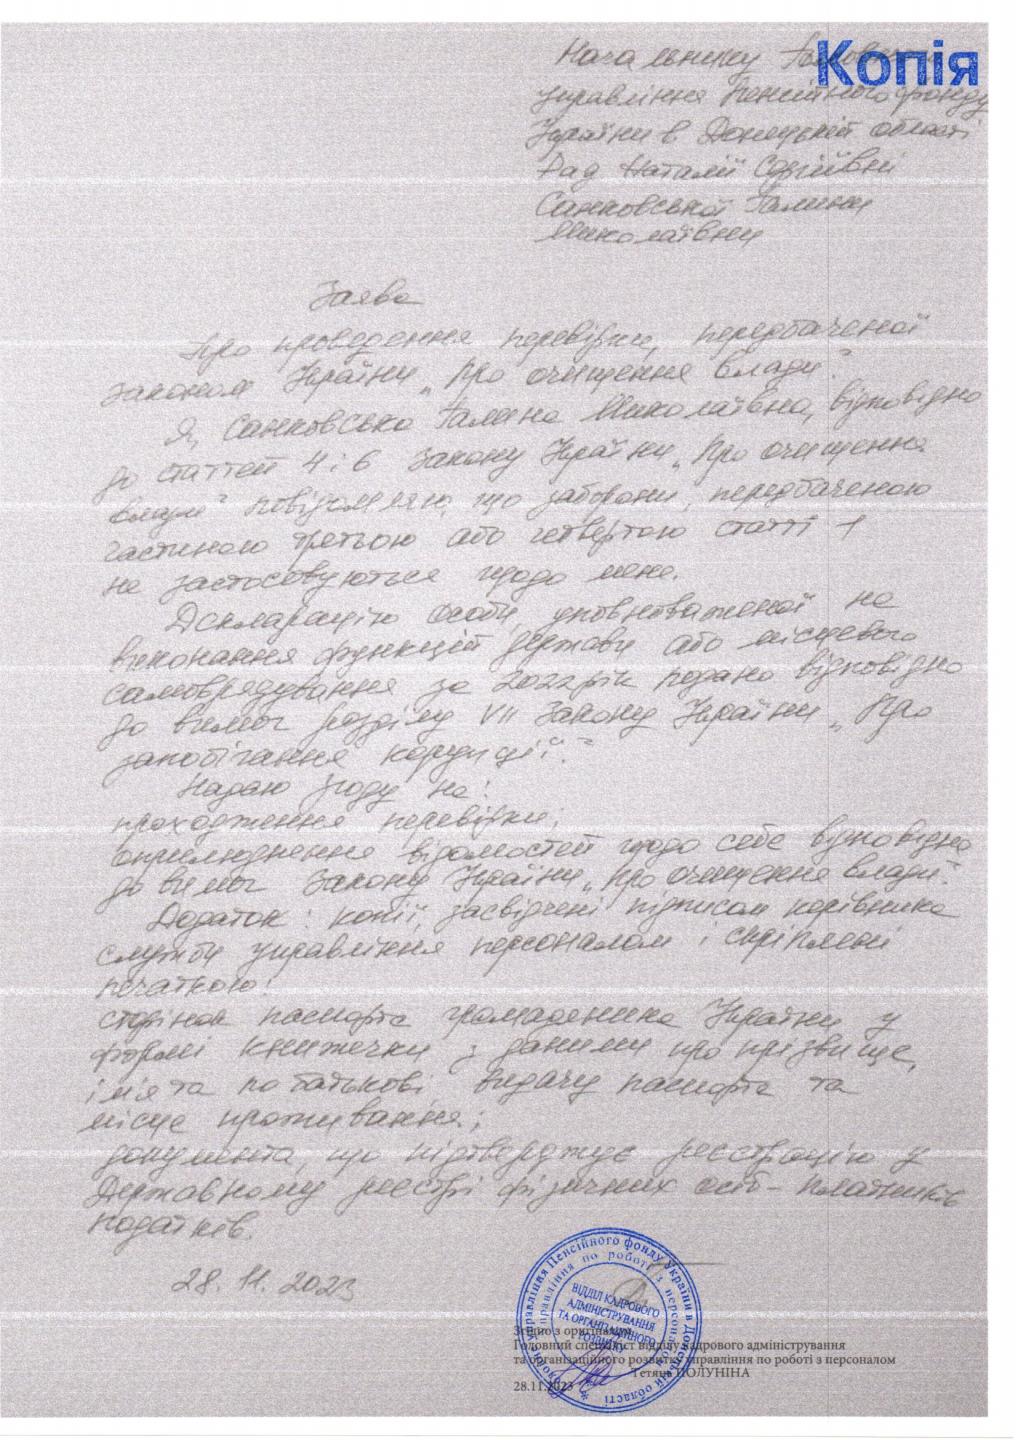 Копія
Начальнику Головного
управління Пенсійного фонду
України в Донецькій області
Рад Наталії Сергіївні
Санковської Галини
Миколаївни
Заява
Про проведення перевірки, передбаченої
законом України „Про очищення влади".
Я, Санковська Галина Миколаївна, відповідно
до статтей 4 і 6 Закону України „Про очищення
влади" повідомляю, що заборони, передбаченою
частиною третьою або четвертою статті 1
не застосовуються щодо мене.
Декларацію особи, уповноваженої на
виконання функцій держави або місцевого
самоврядування за 2022 рік подано відповідно
до вимог розділу VII Закону України „Про
запобігання корупції".
Надаю згоду на:
проходження перевірки;
оприлюднення відомостей щодо себе відповідно
до вимог Закону України „Про очищення влади".
Додаток: копії, засвідчені підписом керівника
служби управління персоналом і скріплені
печаткою:
сторінок паспорта громадянина України у
формі книжечки з даними про прізвище,
ім'я та по батькові, видачу паспорта та
місце проживання;
документа, що підтверджує реєстрацію у
Державному реєстрі фізичних осіб – платників
податків.
28.11.2023
управління Пенсійного фонду України в Донецькій області
управління по роботі з персоналом
ВІДДІЛ КАДРОВОГО
АДМІНІСТРУВАННЯ
ТА ОРГАНІЗАЦІЙНОГО
РОЗВИТКУ
Згідно з оригіналом
Головний спеціаліст відділу кадрового адміністрування
та організаційного розвитку управління по роботі з персоналом
Тетяна ПОЛУНІНА
28.11.2023